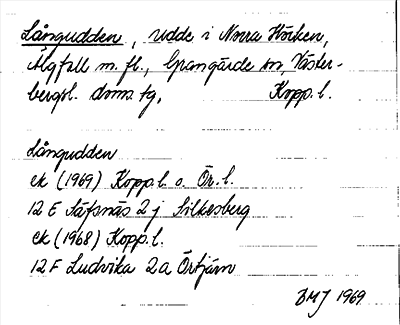 Långudden, udde i Norra Hörken,
Älgfall m. fl., Grangärde sn, Väster-
bergsl. doms. tg, Kopp. l.
Långudden
ek (1969) Kopp. l. o. Ör. l.
12 E Säfsnäs 2 j Silkesberg
ek (1968) Kopp. l.
12 F Ludvika 2 a Örtjärn
BMJ 1969